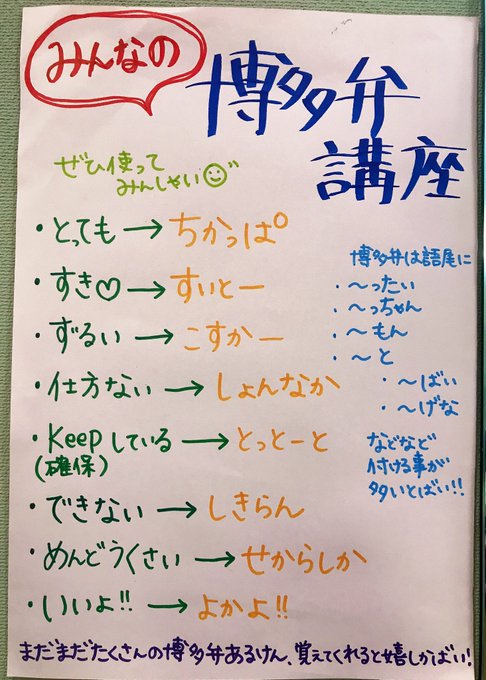 みんなの
博多弁
講座
ぜひ使って
みんしゃい
・とっても→ちかっぱ
・すき♡→すいとー
・ずるい→こすかー
・仕方ない→しょんなか
・Keepしている→とっとーと
(確保)
・できない→しきらん
・めんどうくさい→せからしか
・いいよ!!→よかよ!!
博多弁は語尾に
・〜ったい
・〜っちゃん
・〜もん
・〜と
・〜ばい
・〜げな
などなど
付ける事が
多いとばい!!
まだまだたくさんの博多弁あるけん、覚えてくれると嬉しかばい!